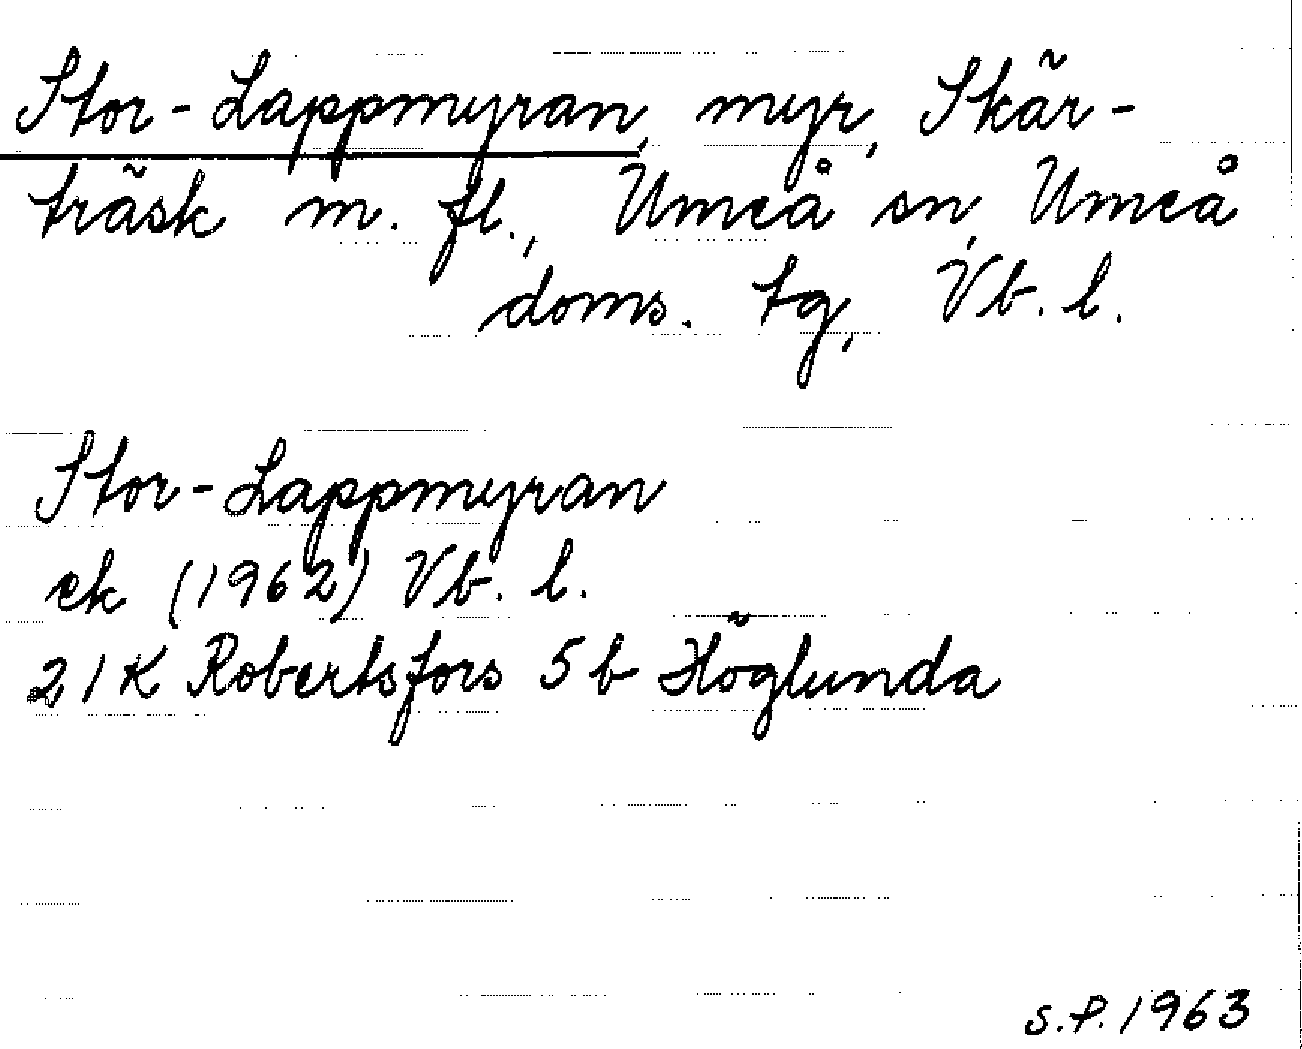 Stor-Lappmyran, myr, Skär-
träsk m. fl., Umeå sn, Umeå
doms. tg, Vb. l.
Stor-Lappmyran
ek (1962) Vb. l.
21K Robertsfors 5b Höglunda
S.P. 1963